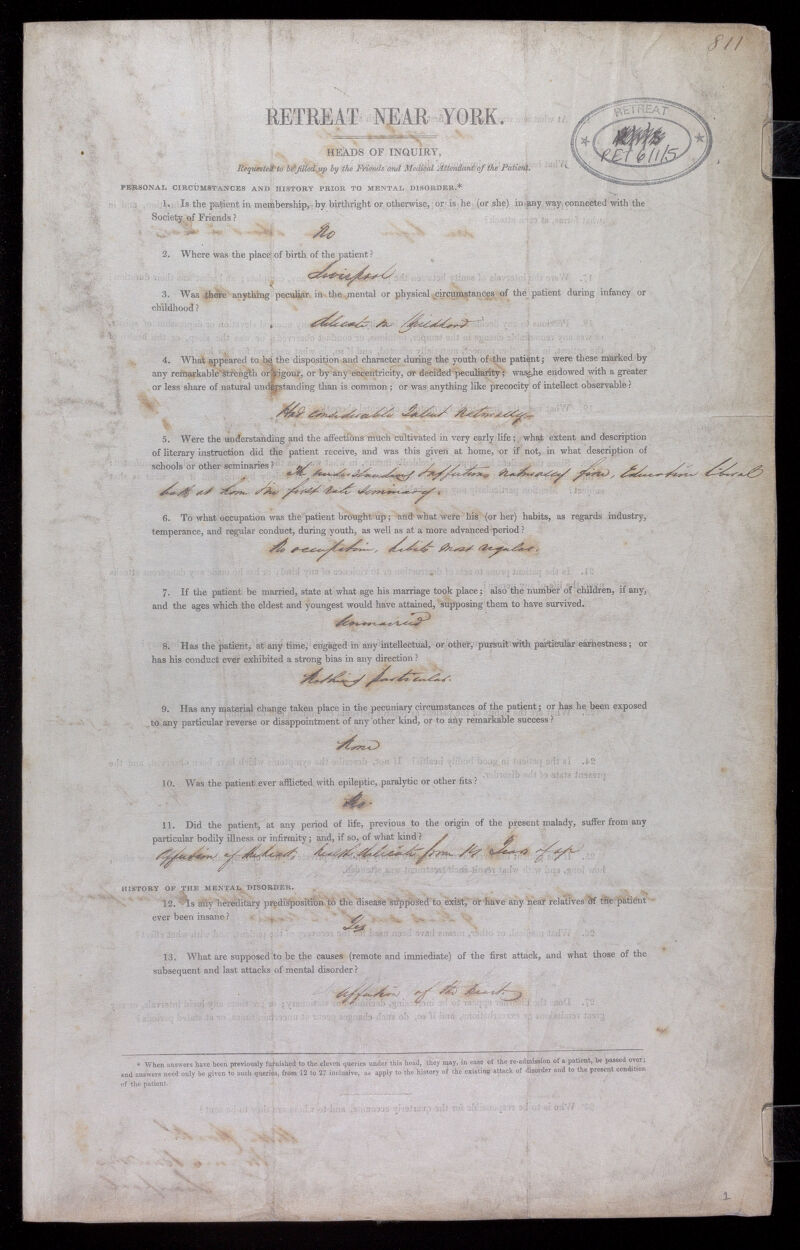 811
RETREAT NEAR YORK.
RETREAT
RET 6/1/5
HEADS OF INQUIRY,
Requested to be filled up by the Friends and Medical Attendant of the Patient.
PERSONAL CIRCUMSTANCES AND HISTORY PRIOR TO MENTAL DISORDER.*
1. Is the patient in membership, by birthright or otherwise, or is he (or she) in any way connected with the
Society of Friends?
No
2. Where was the place of birth of the patient?
Liverpool
3. Was there anything peculiar in the mental or physical circumstances of the patient during infancy or
childhood?
delicate in Childhood
4. What appeared to be the disposition and character during the youth of the patient; were these marked by
any remarkable strength or vigour, or by any eccentricity, or decided peculiarity; was he endowed with a greater
or less share of natural understanding than is common; or was anything like precocity of intellect observable?
Had considerable Talent naturally.
5. Were the understanding and the affections much cultivated in very early life; what extent and description
of literary instruction did the patient receive, and was this given at home, or if not, in what description of
schools or other seminaries?
The understanding & affections naturally fine, Education liberal
both at home first rate Seminary.
6. To what occupation was the patient brought up; and what were his (or her) habits, as regards industry,
temperance, and regular conduct, during youth, as well as at a more advanced period?
No occupation. habits most regular.
7. If the patient be married, state at what age his marriage took place; also the number of children, if any,
and the ages which the eldest and youngest would have attained, supposing them to have survived.
Unmarried
8. Has the patient, at any time, engaged in any intellectual, or other, pursuit with particular earnestness; or
has his conduct ever exhibited a strong bias in any direction?
Nothing particular.
9. Has any material change taken place in the pecuniary circumstances of the patient; or has he been exposed
to any particular reverse or disappointment of any other kind, or to any remarkable success?
None
10. Was the patient ever afflicted with epileptic, paralytic or other fits?
No.
11. Did the patient, at any period of life, previous to the origin of the present malady, suffer from any
particular bodily illness or infirmity; and, if so, of what kind?
Affection of the heart, health delicate from Years of age
HISTORY OF THE MENTAL DISORDER.
12. Is any hereditary predisposition to the disease supposed to exist, or have any near relatives of the patient
ever been insane?
Yes
13. What are supposed to be the causes (remote and immediate) of the first attack, and what those of the
subsequent and last attacks of mental disorder?
affection of the heart
* When answers have been previously furnished to the eleven queries under this head, they may, in case of the re-admission of a patient, be passed over;
and answers need only be given to such queries, from 12 to 27 inclusive, as apply to the history of the existing attack of disorder and to the present condition
of the patient.
1